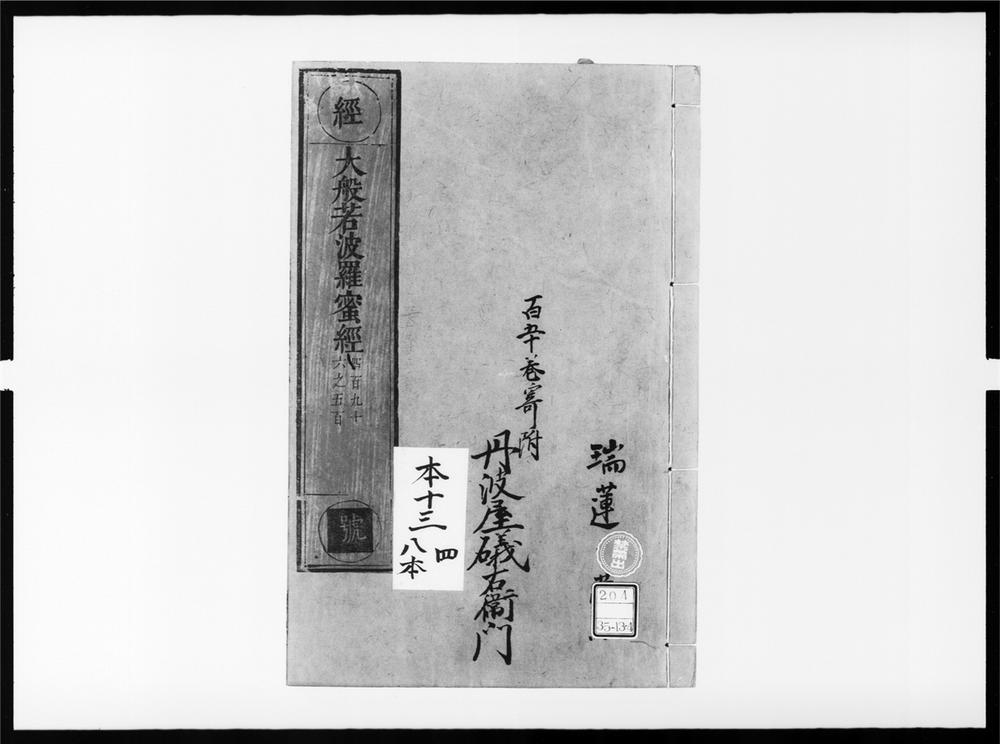 瑞蓮
百五十巻寄附
丹波屋礒右衛門
本十三
四
八本
經
大般若波羅蜜經
四百九十
六之五百
號
禁帯出
204
35-134